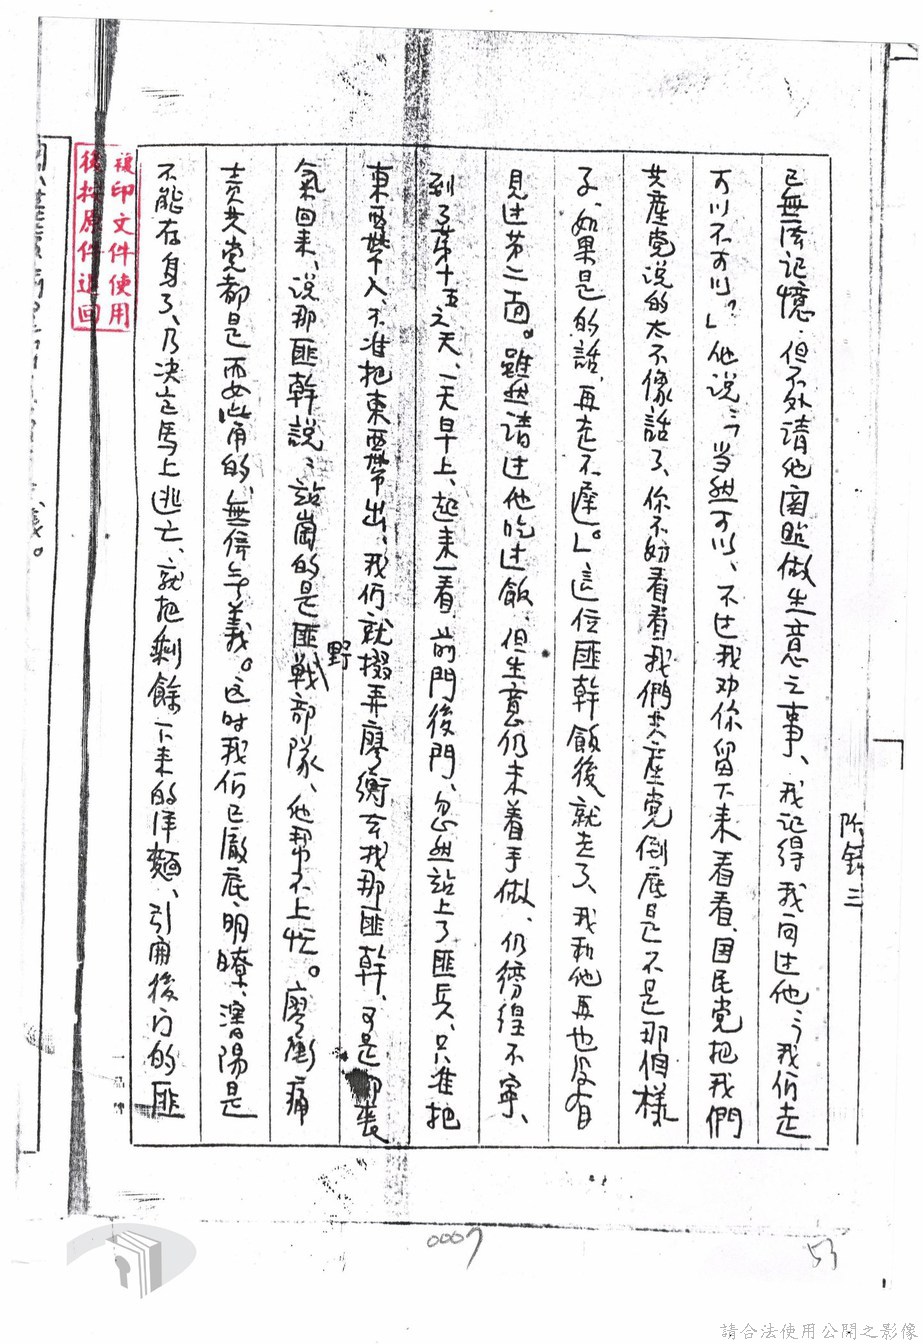 已無法記憶、但不外請他関照做生意之事、我記得我问过他：「我们走
可以不可以？」他说：「当然可以、不过我劝你留下来看看、国民党把我們
共產党说的太不像話了、你不妨看看我們共產党倒底是不是那個樣
子、如果是的話、再走不遲。」這位匪幹飯後就走了、我和他再也没有
見过第二面。雖然请过他吃过飯、但生意仍未着手做、仍徬徨不寧、
到了第十五之天、一天早上、起来一看、前門後門、忽然站上了匪兵、只准把
東西帶入、不准把東西帶出、我们就掇弄廖衡去找那匪幹、可是
喪
氣回来、说那匪幹説：站崗的是匪野戰部隊、他帮不上忙。廖衡痛
责共党都是 的、無信無義。这时我们已澈底明瞭、瀋陽是
不能存身了、乃决定馬上逃亡、就把剩餘下来的洋麵、引開後门的匪
陈 三
複印文件使用
後於原件退回
義。
0007
53
請合法使用公開之影像